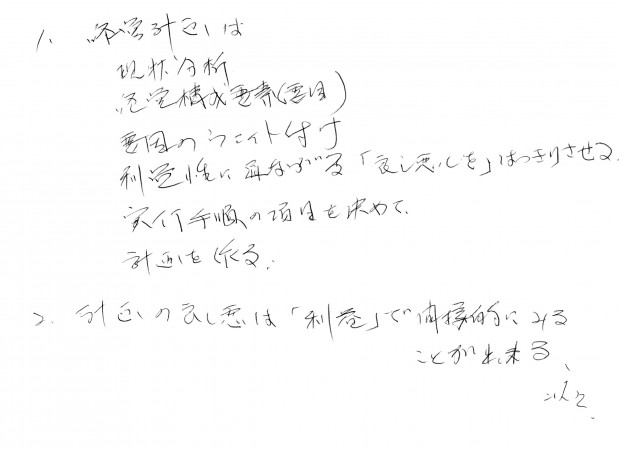 1、経営計画は
現状分析
経営構成要素(要因)
要因のウエイト付け
利益性に繋ながる「良し悪しを」はっきりさせる。
実行手順の項目を決めて、
計画を作る。
2、計画の良し悪は「利益」で直接的にみる
ことが出来る、
以上